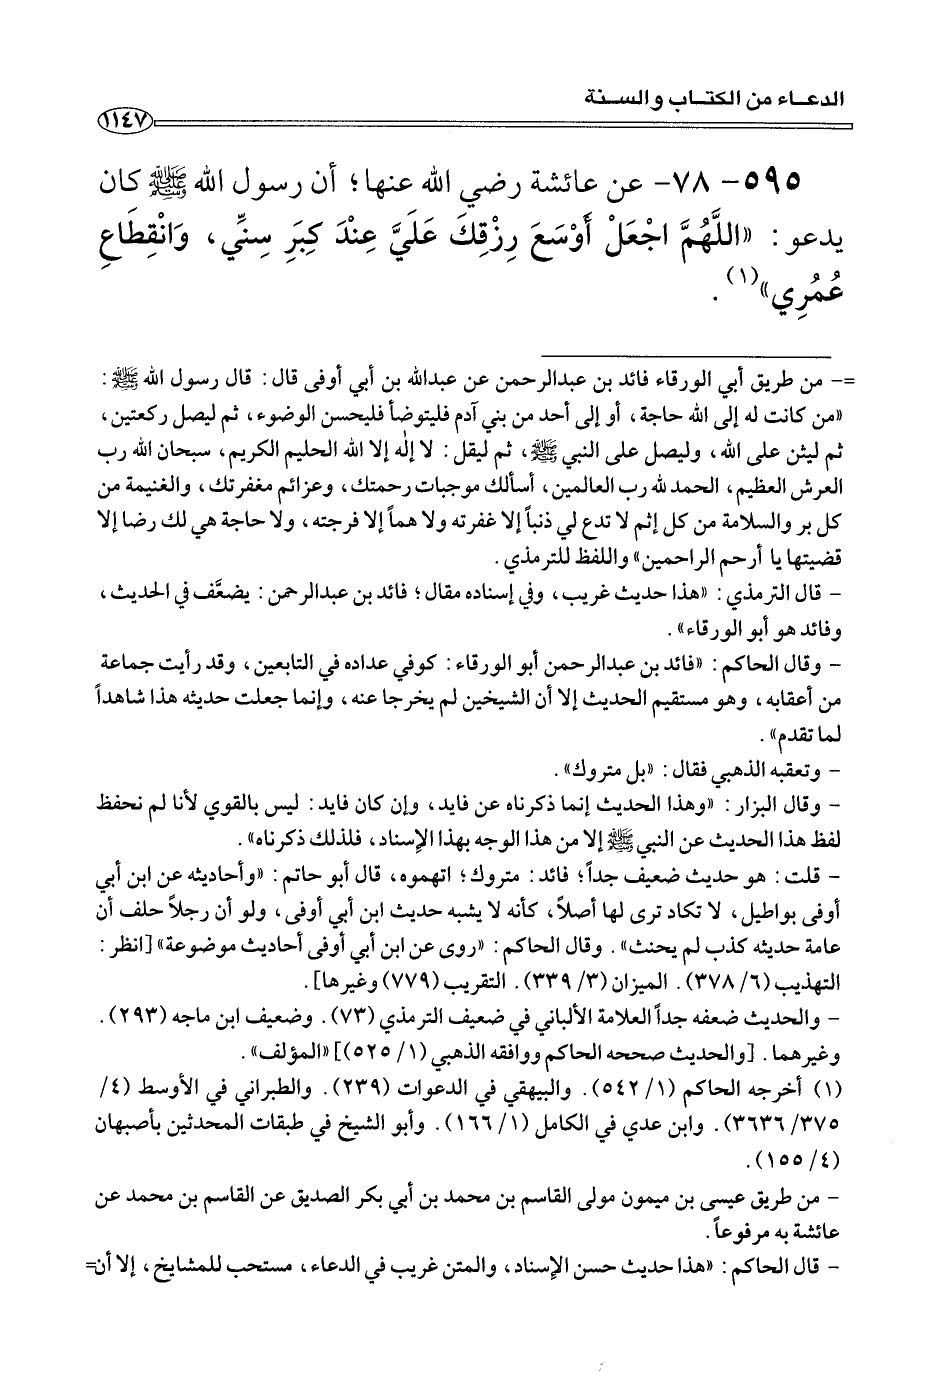 الدعـاء من الكتـاب والسـنة
١١٤٧
٥٩٥- ٧٨- عن عائشة رضي الله عنها؛ أن رسول الله ﷺ كان
يدعو: «اللَّهُمَّ اجْعَلْ أَوْسَعَ رِزْقِكَ عَلَيَّ عِنْدَ كِبَرِ سِنِّي، وَانْقِطَاعِ
عُمُرِي»(١).
=- من طريق أبي الورقاء فائد بن عبدالرحمن عن عبدالله بن أبي أوفى قال: قال رسول الله ﷺ:
«من كانت له إلى الله حاجة، أو إلى أحد من بني آدم فليتوضأ فليحسن الوضوء، ثم ليصل ركعتين،
ثم ليثن على الله، وليصل على النبي ﷺ، ثم ليقل: لا إله إلا الله الحليم الكريم، سبحان الله رب
العرش العظيم، الحمد لله رب العالمين، أسألك موجبات رحمتك، وعزائم مغفرتك، والغنيمة من
كل بر والسلامة من كل إثم لا تدع لي ذنباً إلا غفرته ولا هماً إلا فرجته، ولا حاجة هي لك رضا إلا
قضيتها يا أرحم الراحمين» واللفظ للترمذي.
- قال الترمذي: «هذا حديث غريب، وفي إسناده مقال؛ فائد بن عبدالرحمن: يضعَّف في الحديث،
وفائد هو أبو الورقاء».
- وقال الحاكم: «فائد بن عبدالرحمن أبو الورقاء: كوفي عداده في التابعين، وقد رأيت جماعة
من أعقابه، وهو مستقيم الحديث إلا أن الشيخين لم يخرجا عنه، وإنما جعلت حديثه هذا شاهداً
لما تقدم».
- وتعقبه الذهبي فقال: «بل متروك».
- وقال البزار: «وهذا الحديث إنما ذكرناه عن فايد، وإن كان فايد: ليس بالقوي لأنا لم نحفظ
لفظ هذا الحديث عن النبي ﷺ إلا من هذا الوجه بهذا الإسناد، فلذلك ذكرناه».
- قلت: هو حديث ضعيف جداً؛ فائد: متروك؛ اتهموه، قال أبو حاتم: «وأحاديثه عن ابن أبي
أوفى بواطيل، لا تكاد ترى لها أصلاً، كأنه لا يشبه حديث ابن أبي أوفى، ولو أن رجلاً حلف أن
عامة حديثه كذب لم يحنث». وقال الحاكم: «روى عن ابن أبي أوفى أحاديث موضوعة» [انظر:
التهذيب (٦/ ٣٧٨). الميزان (٣/ ٣٣٩). التقريب (٧٧٩) وغيرها].
- والحديث ضعفه جداً العلامة الألباني في ضعيف الترمذي (٧٣). وضعيف ابن ماجه (٢٩٣).
وغيرهما. [والحديث صححه الحاكم ووافقه الذهبي (١/ ٥٢٥)] «المؤلف».
(١) أخرجه الحاكم (١/ ٥٤٢). والبيهقي في الدعوات (٢٣٩). والطبراني في الأوسط (٤/
٣٧٥/ ٣٦٣٦). وابن عدي في الكامل (١/ ١٦٦). وأبو الشيخ في طبقات المحدثين بأصبهان
(٤/ ١٥٥).
- من طريق عيسى بن ميمون مولى القاسم بن محمد بن أبي بكر الصديق عن القاسم بن محمد عن
عائشة به مرفوعاً.
- قال الحاكم: «هذا حديث حسن الإسناد، والمتن غريب في الدعاء، مستحب للمشايخ، إلا أن=